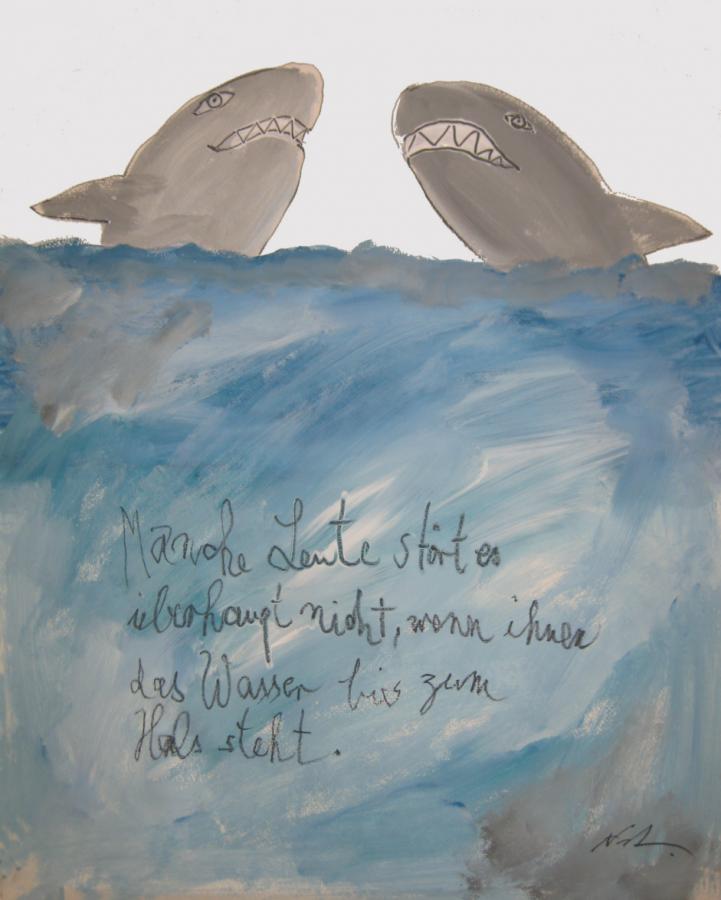 Manche Leute stört es
überhaupt nicht, wenn ihnen
das Wasser bis zum
Hals steht.